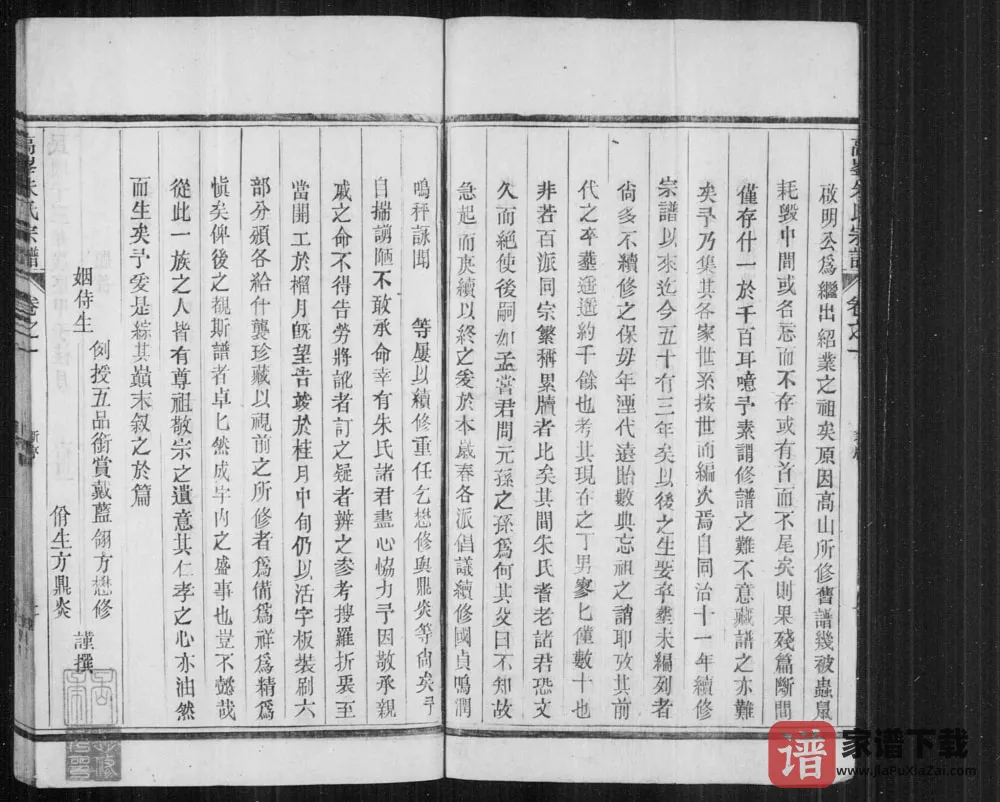 啟明公爲繼出紹業之祖矣原因高山所修舊譜幾被蟲鼠
耗毀中間或名忘而不存或有首而不尾矣則果殘篇斷間
僅存什一於千百耳噫予素謂修譜之難不意藏譜之亦難
矣予乃集其各家世系按世而編次焉自同治十一年續修
宗譜以來迄今五十有三年矣以後之生娶卒塟未編列者
尙多不續修之保毋年湮代遠貽數典忘祖之誚耶攷其前
代之卒塟遥遥約千餘也考其現在之丁男寥匕僅數十也
非若百派同宗繁稱累牘者比矣其間朱氏耆老諸君恐文
久而絕使後嗣如孟嘗君問元孫之孫爲何其父曰不知故
急起而庚續以終之爰於本歲春各派倡議續修國貞鳴潤
鳴秤詠聞　等屢以續修重任乞懋修與鼎炎等尙矣予
自揣謭陋不敢承命幸有朱氏諸君盡心恊力予因敬承親
戚之命不得告勞將訛者訂之疑者辨之參考搜羅折衷至
當開工於榴月旣望告竣於桂月中旬仍以活字板裝刷六
部分頒各給什襲珍藏以視前之所修者爲備爲祥爲精爲
愼矣俾後之覩斯譜者卓匕然成宇內之盛事也豈不懿哉
從此一族之人皆有尊祖敬宗之遺意其仁孝之心亦油然
而生矣予爰是綜其巔末叙之於篇
姻侍生
例授五品銜賞戴藍翎方懋修
佾生方鼎炎
謹撰
高峯朱氏宗譜
卷之一
家谱下载
www.jiaPuXiaZai.com
谱